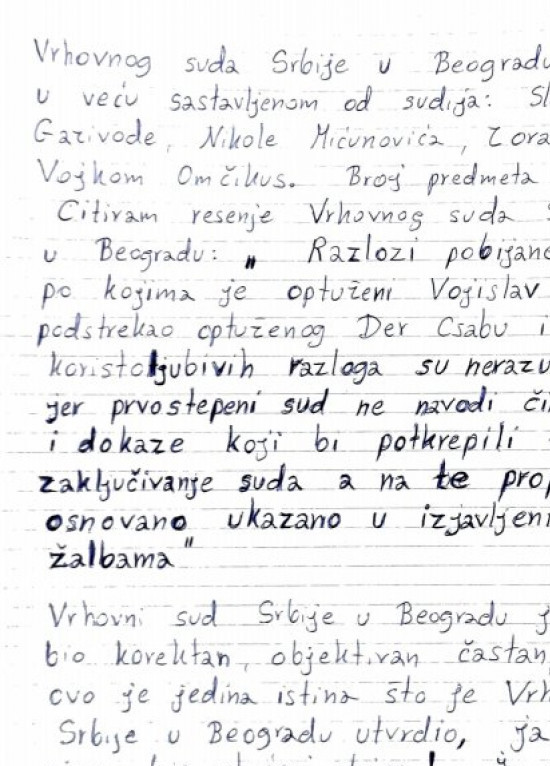 Vrhovnog suda Srbije u Beogradu
u veću sastavljenom od sudija: Sl
Garivode, Nikole Mićunovića, Zora
Vojkom Omčikus. Broj predmeta
Citiram resenje Vrhovnog suda
u Beogradu: „ Razlozi pobijane
po kojima je optuženi Vojislav
podstrekao optuženog Der Csabu i
koristoljubivih razloga su nerazu
jer prvostepeni sud ne navodi či
i dokaze koji bi potkrepili
zaključivanje suda a na te prop
osnovano ukazano u izjavljeni
žalbama"
Vrhovni sud Srbije u Beogradu j
bio korektan, objektivan častan
ovo je jedina istina što je Vrh
Srbije u Beogradu utvrdio, ja